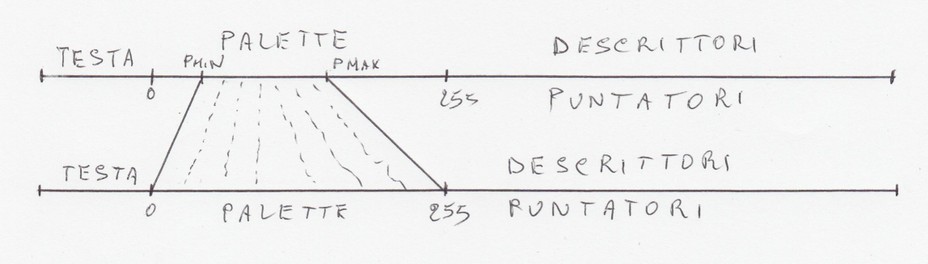 PALETTE DESCRITTORI
TESTA PMIN PMAX
0 255 PUNTATORI
TESTA DESCRITTORI
0 PALETTE 255 PUNTATORI